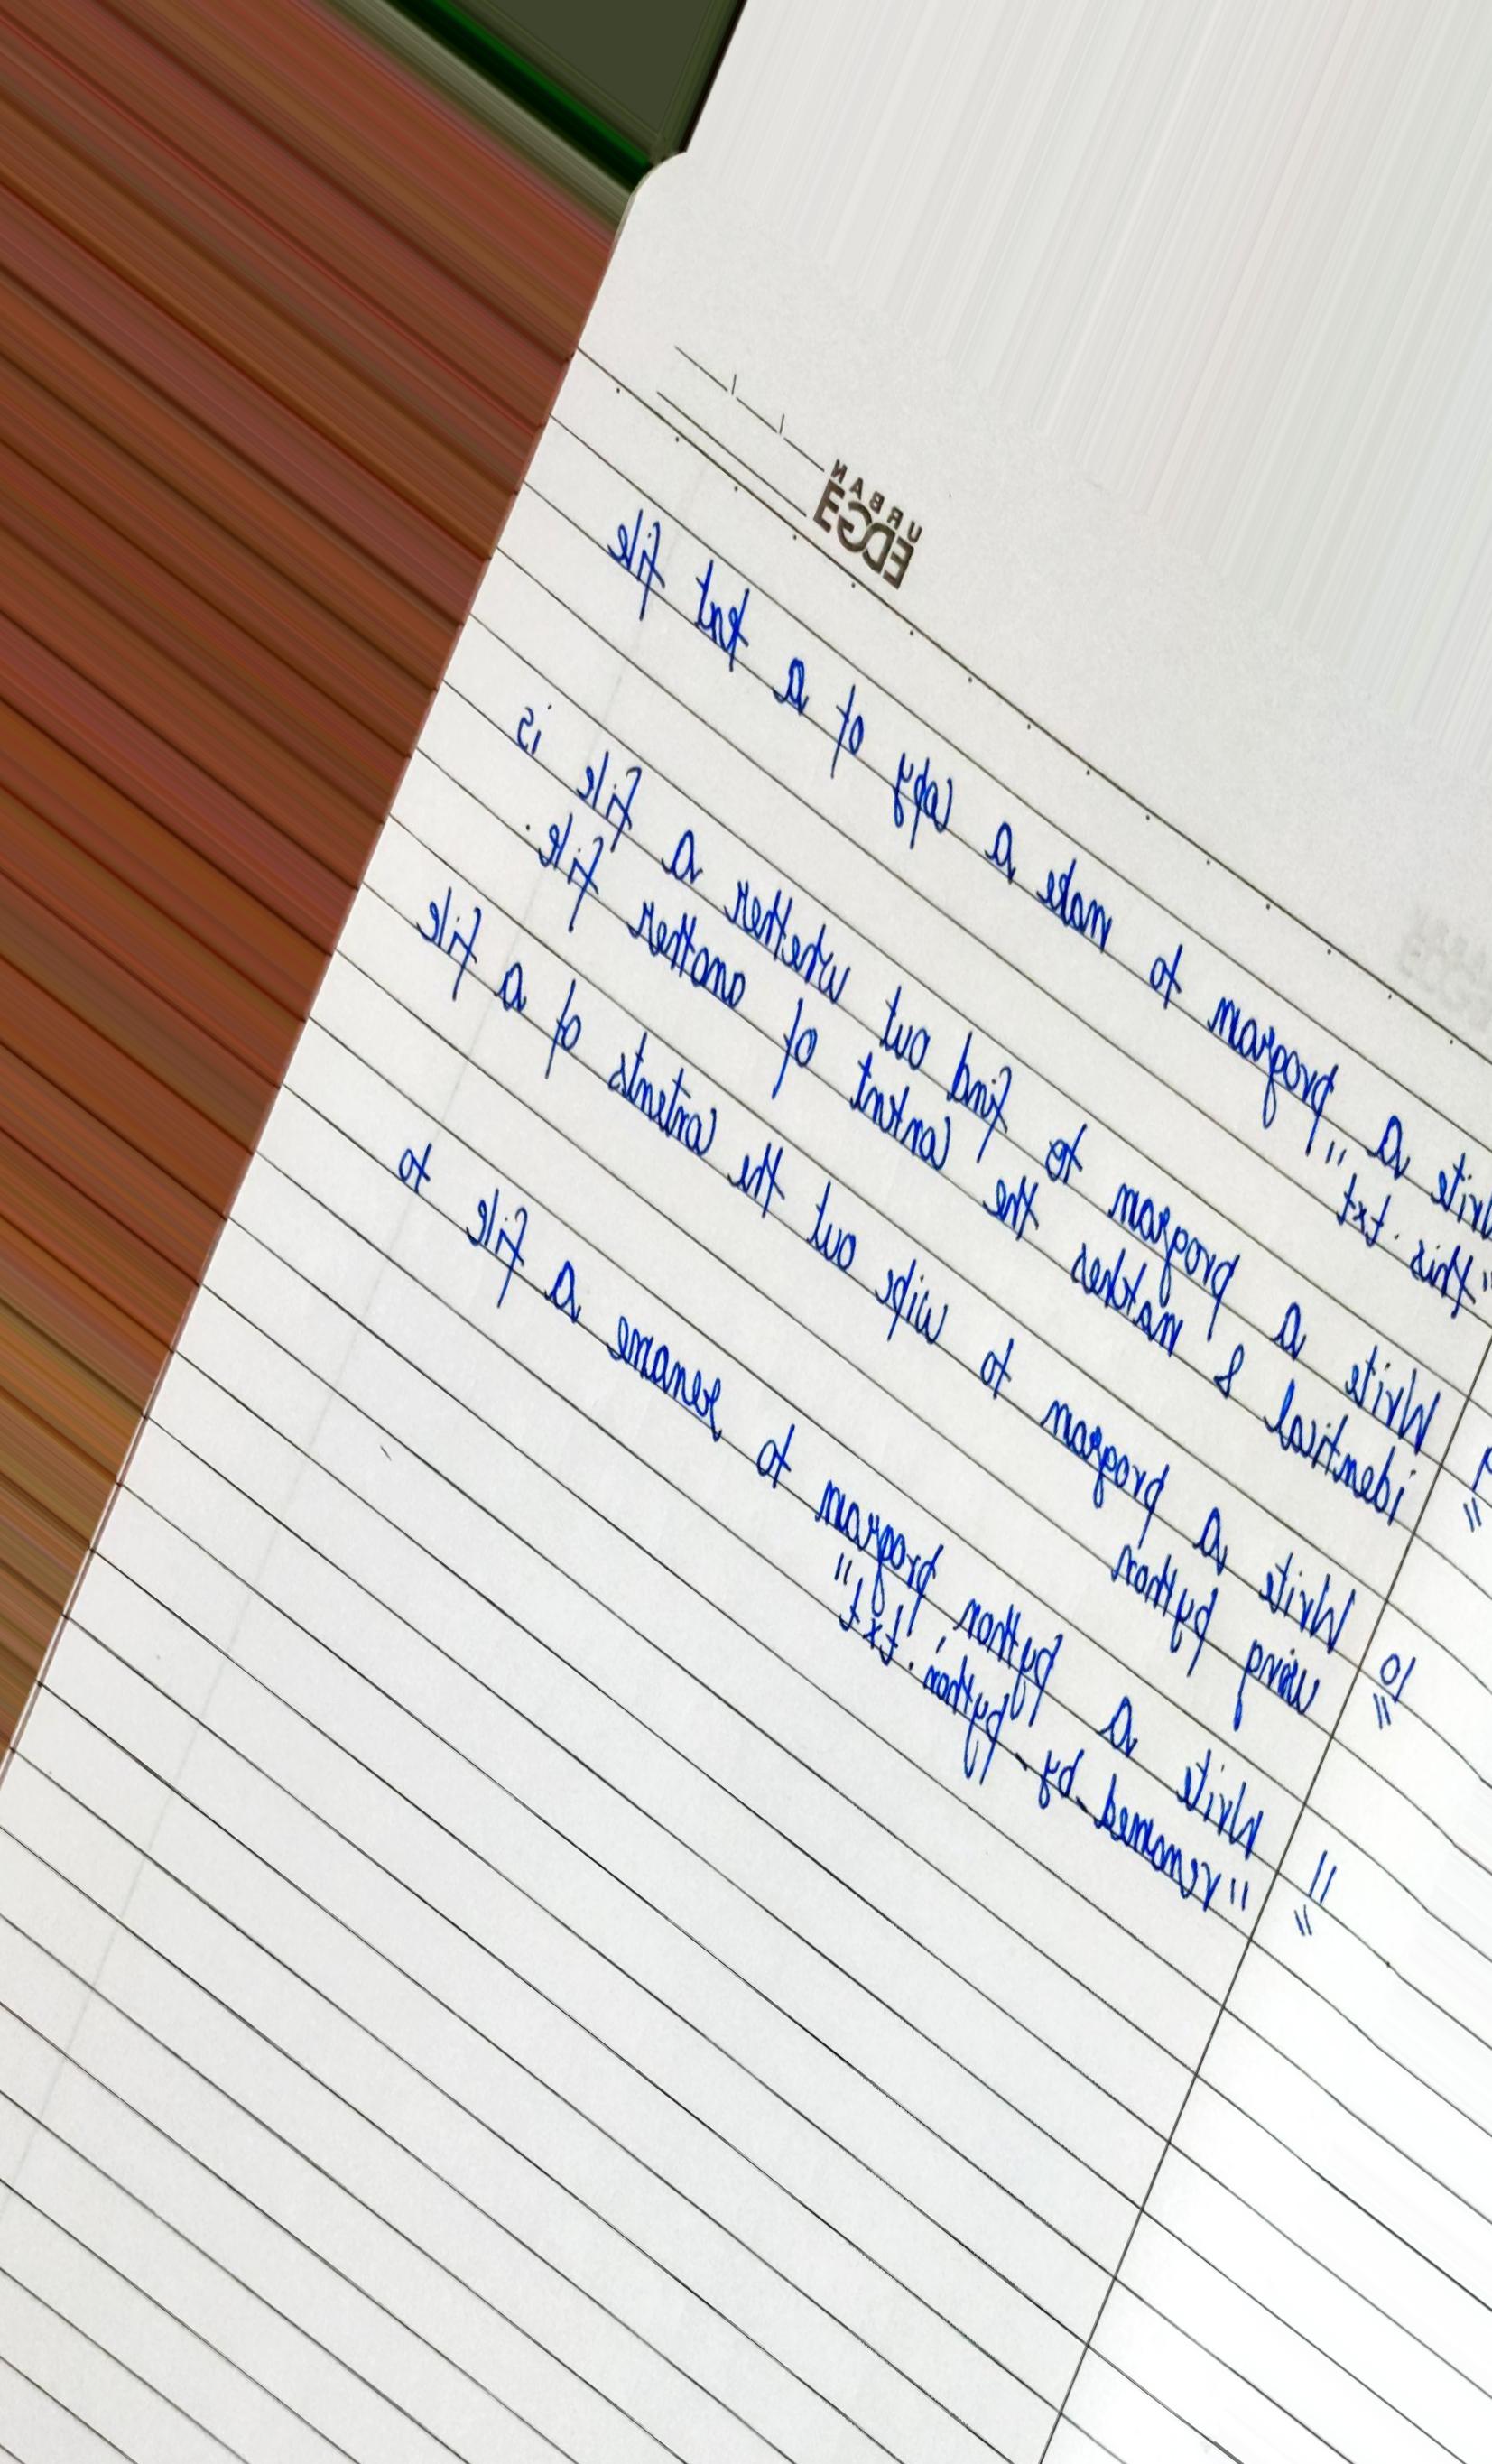 URBAN
EDGE
Write a program to make a copy of a text file
"this.txt"
9 Write a program to find out whether a file is
identical & matches the content of another file.
10 Write a program to wipe out the contents of a file
using python
11 Write a python program to rename a file to
"renamed_by_python.txt"